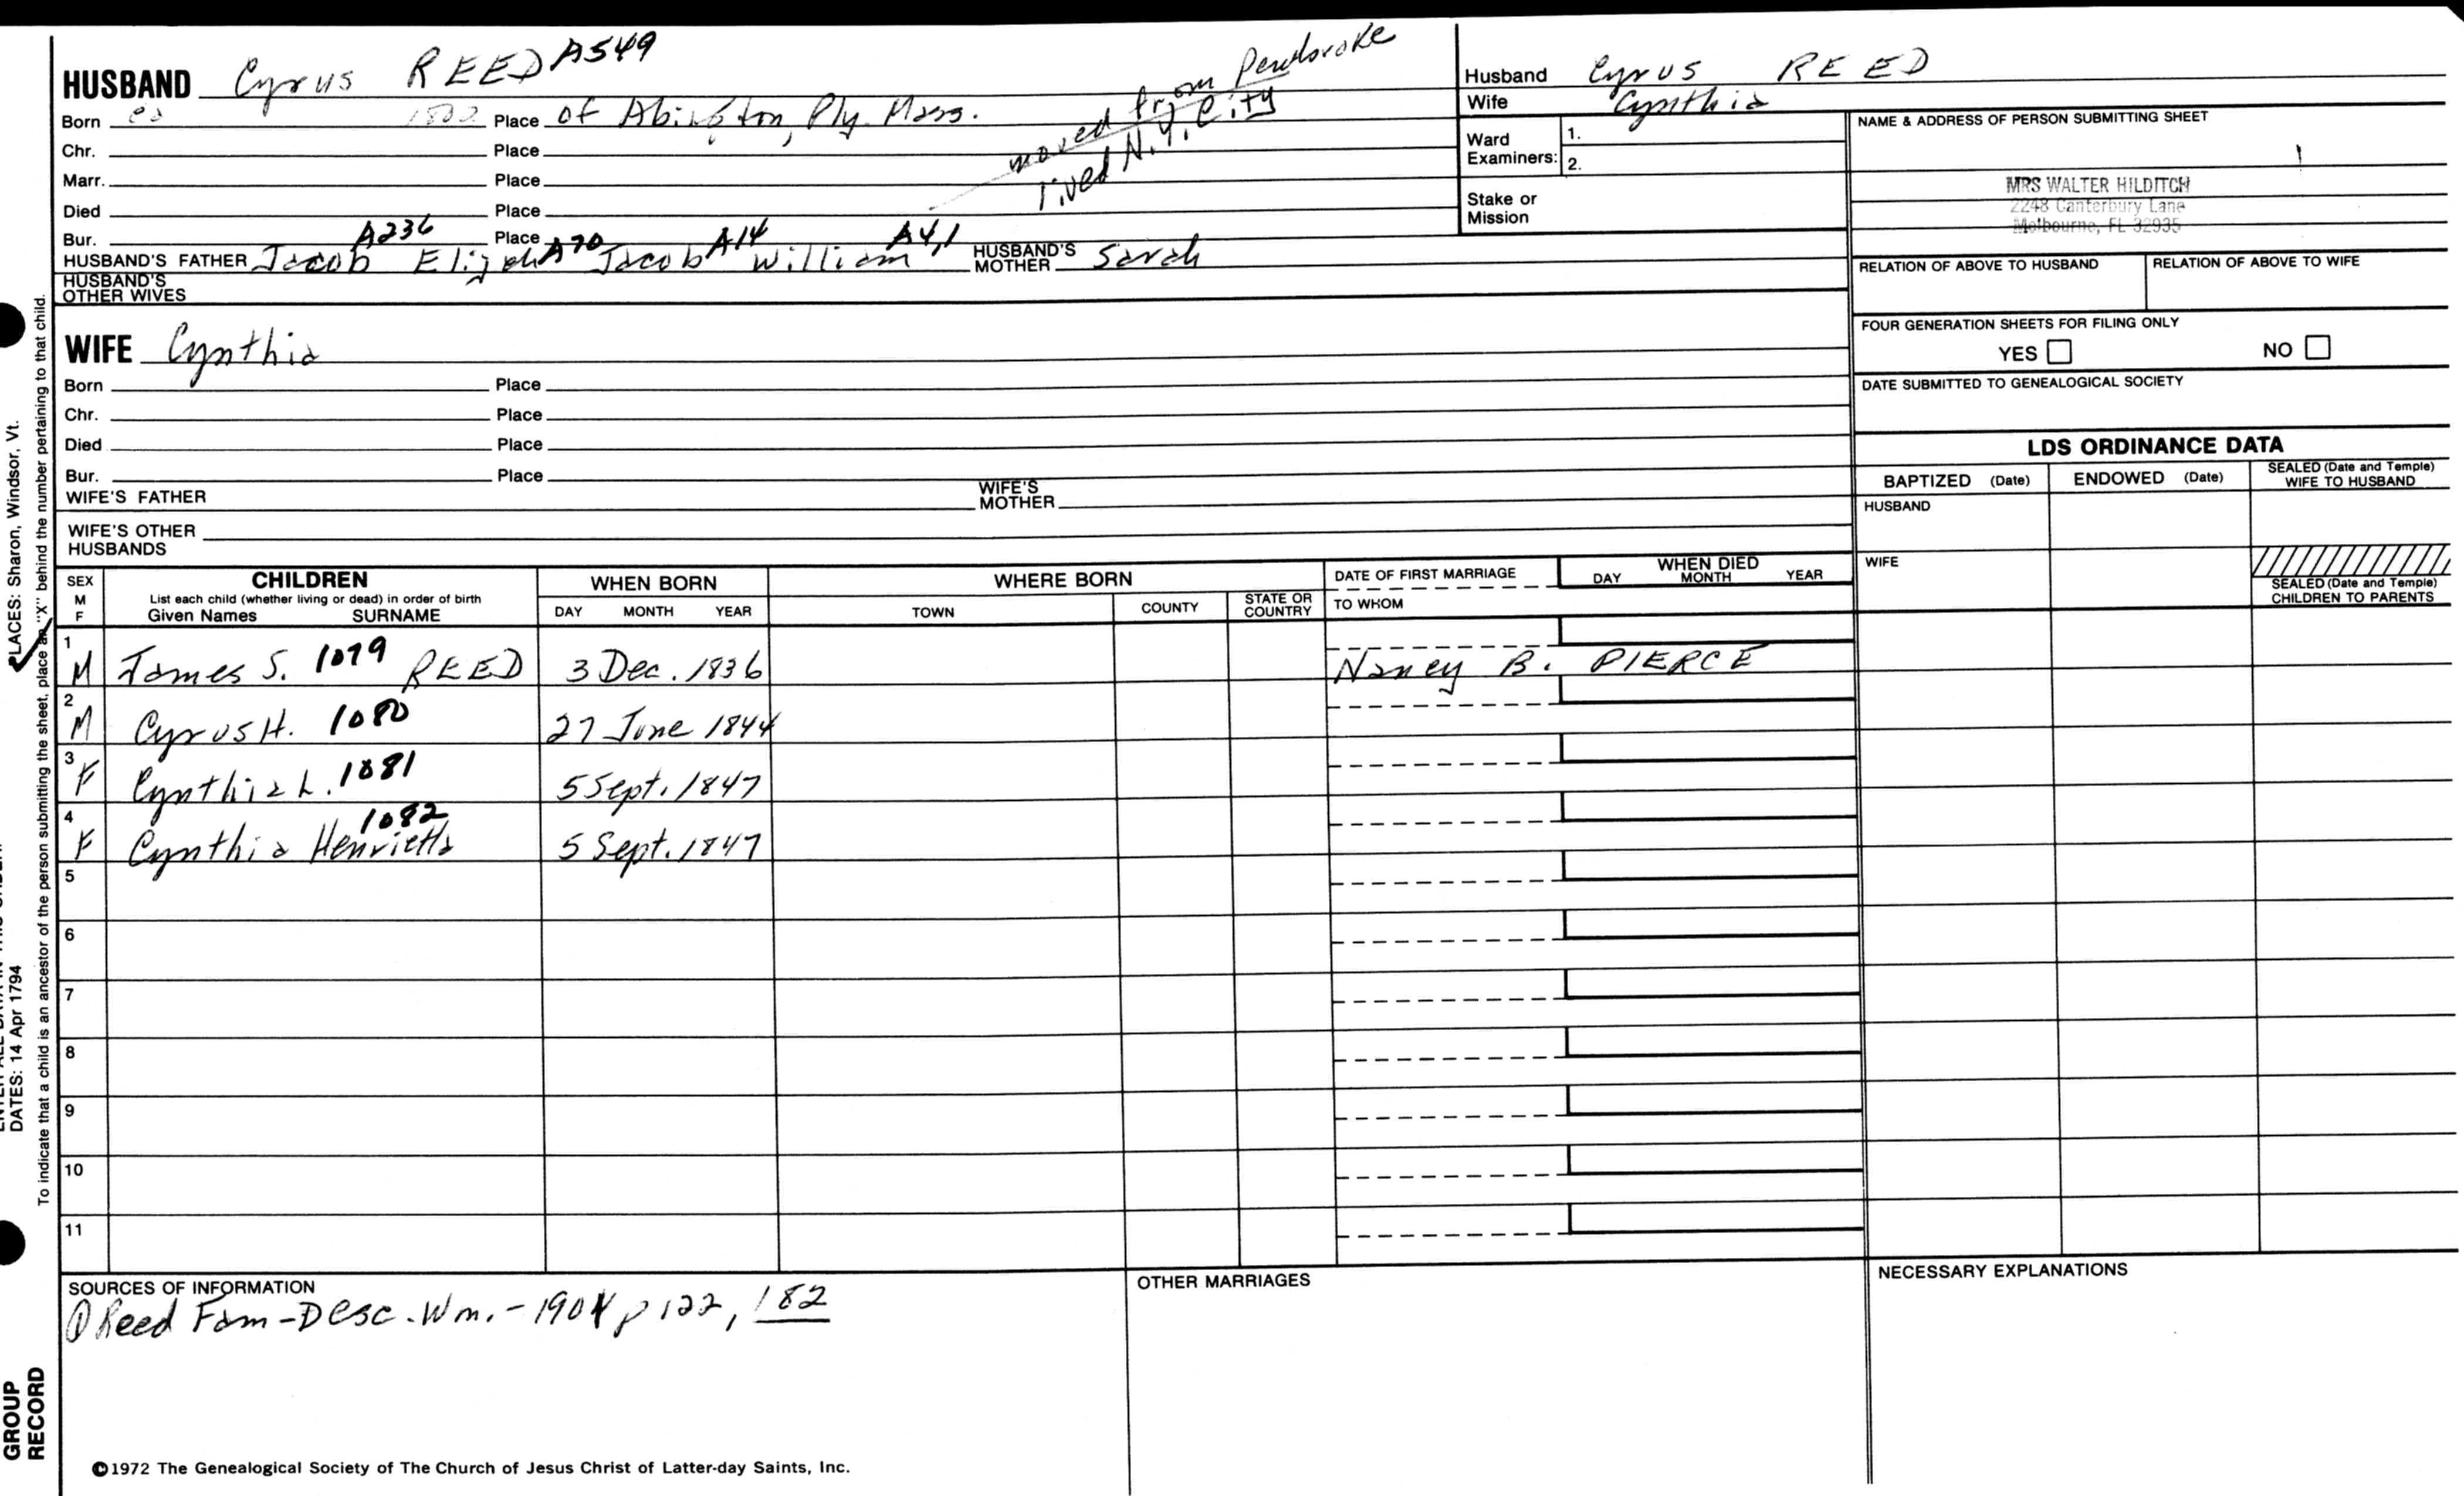 HUSBAND Cyrus REED A549
Born ca 1802 Place of Abington, Ply. Mass.
moved from Pembroke
lived N.Y. City
Chr. Place
Marr. Place
Died Place
Bur. Place
HUSBAND'S FATHER Jacob A236 Elijah A70 Jacob A14 William A4,1 HUSBAND'S MOTHER Sarah
HUSBAND'S OTHER WIVES
Husband Cyrus REED
Wife Cynthia
Ward Examiners: 1.
2.
Stake or Mission
NAME & ADDRESS OF PERSON SUBMITTING SHEET
MRS WALTER HILDITCH
2248 Canterbury Lane
Melbourne, FL 32935
RELATION OF ABOVE TO HUSBAND RELATION OF ABOVE TO WIFE
FOUR GENERATION SHEETS FOR FILING ONLY
YES NO
DATE SUBMITTED TO GENEALOGICAL SOCIETY
WIFE Cynthia
Born Place
Chr. Place
Died Place
Bur. Place
WIFE'S FATHER WIFE'S MOTHER
WIFE'S OTHER HUSBANDS
LDS ORDINANCE DATA
BAPTIZED (Date) ENDOWED (Date) SEALED (Date and Temple) WIFE TO HUSBAND
HUSBAND
WIFE
SEALED (Date and Temple) CHILDREN TO PARENTS
SEX M F
CHILDREN
List each child (whether living or dead) in order of birth
Given Names SURNAME
WHEN BORN
DAY MONTH YEAR
WHERE BORN
TOWN COUNTY STATE OR COUNTRY
DATE OF FIRST MARRIAGE
TO WHOM
WHEN DIED
DAY MONTH YEAR
1 M James S. 1079 REED 3 Dec. 1836 Nancy B. PIERCE
2 M Cyrus H. 1080 27 June 1844
3 F Cynthia L. 1081 5 Sept. 1847
4 F Cynthia Henrietta 1082 5 Sept. 1847
5
6
7
8
9
10
11
SOURCES OF INFORMATION
① Reed Fam-Desc. Wm. - 1904 p 122, 182
OTHER MARRIAGES
NECESSARY EXPLANATIONS
©1972 The Genealogical Society of The Church of Jesus Christ of Latter-day Saints, Inc.
PLACES: Sharon, Windsor, Vt.
DATES: 14 Apr 1794
To indicate that a child is an ancestor of the person submitting the sheet, place an "X" behind the number pertaining to that child.
GROUP
RECORD